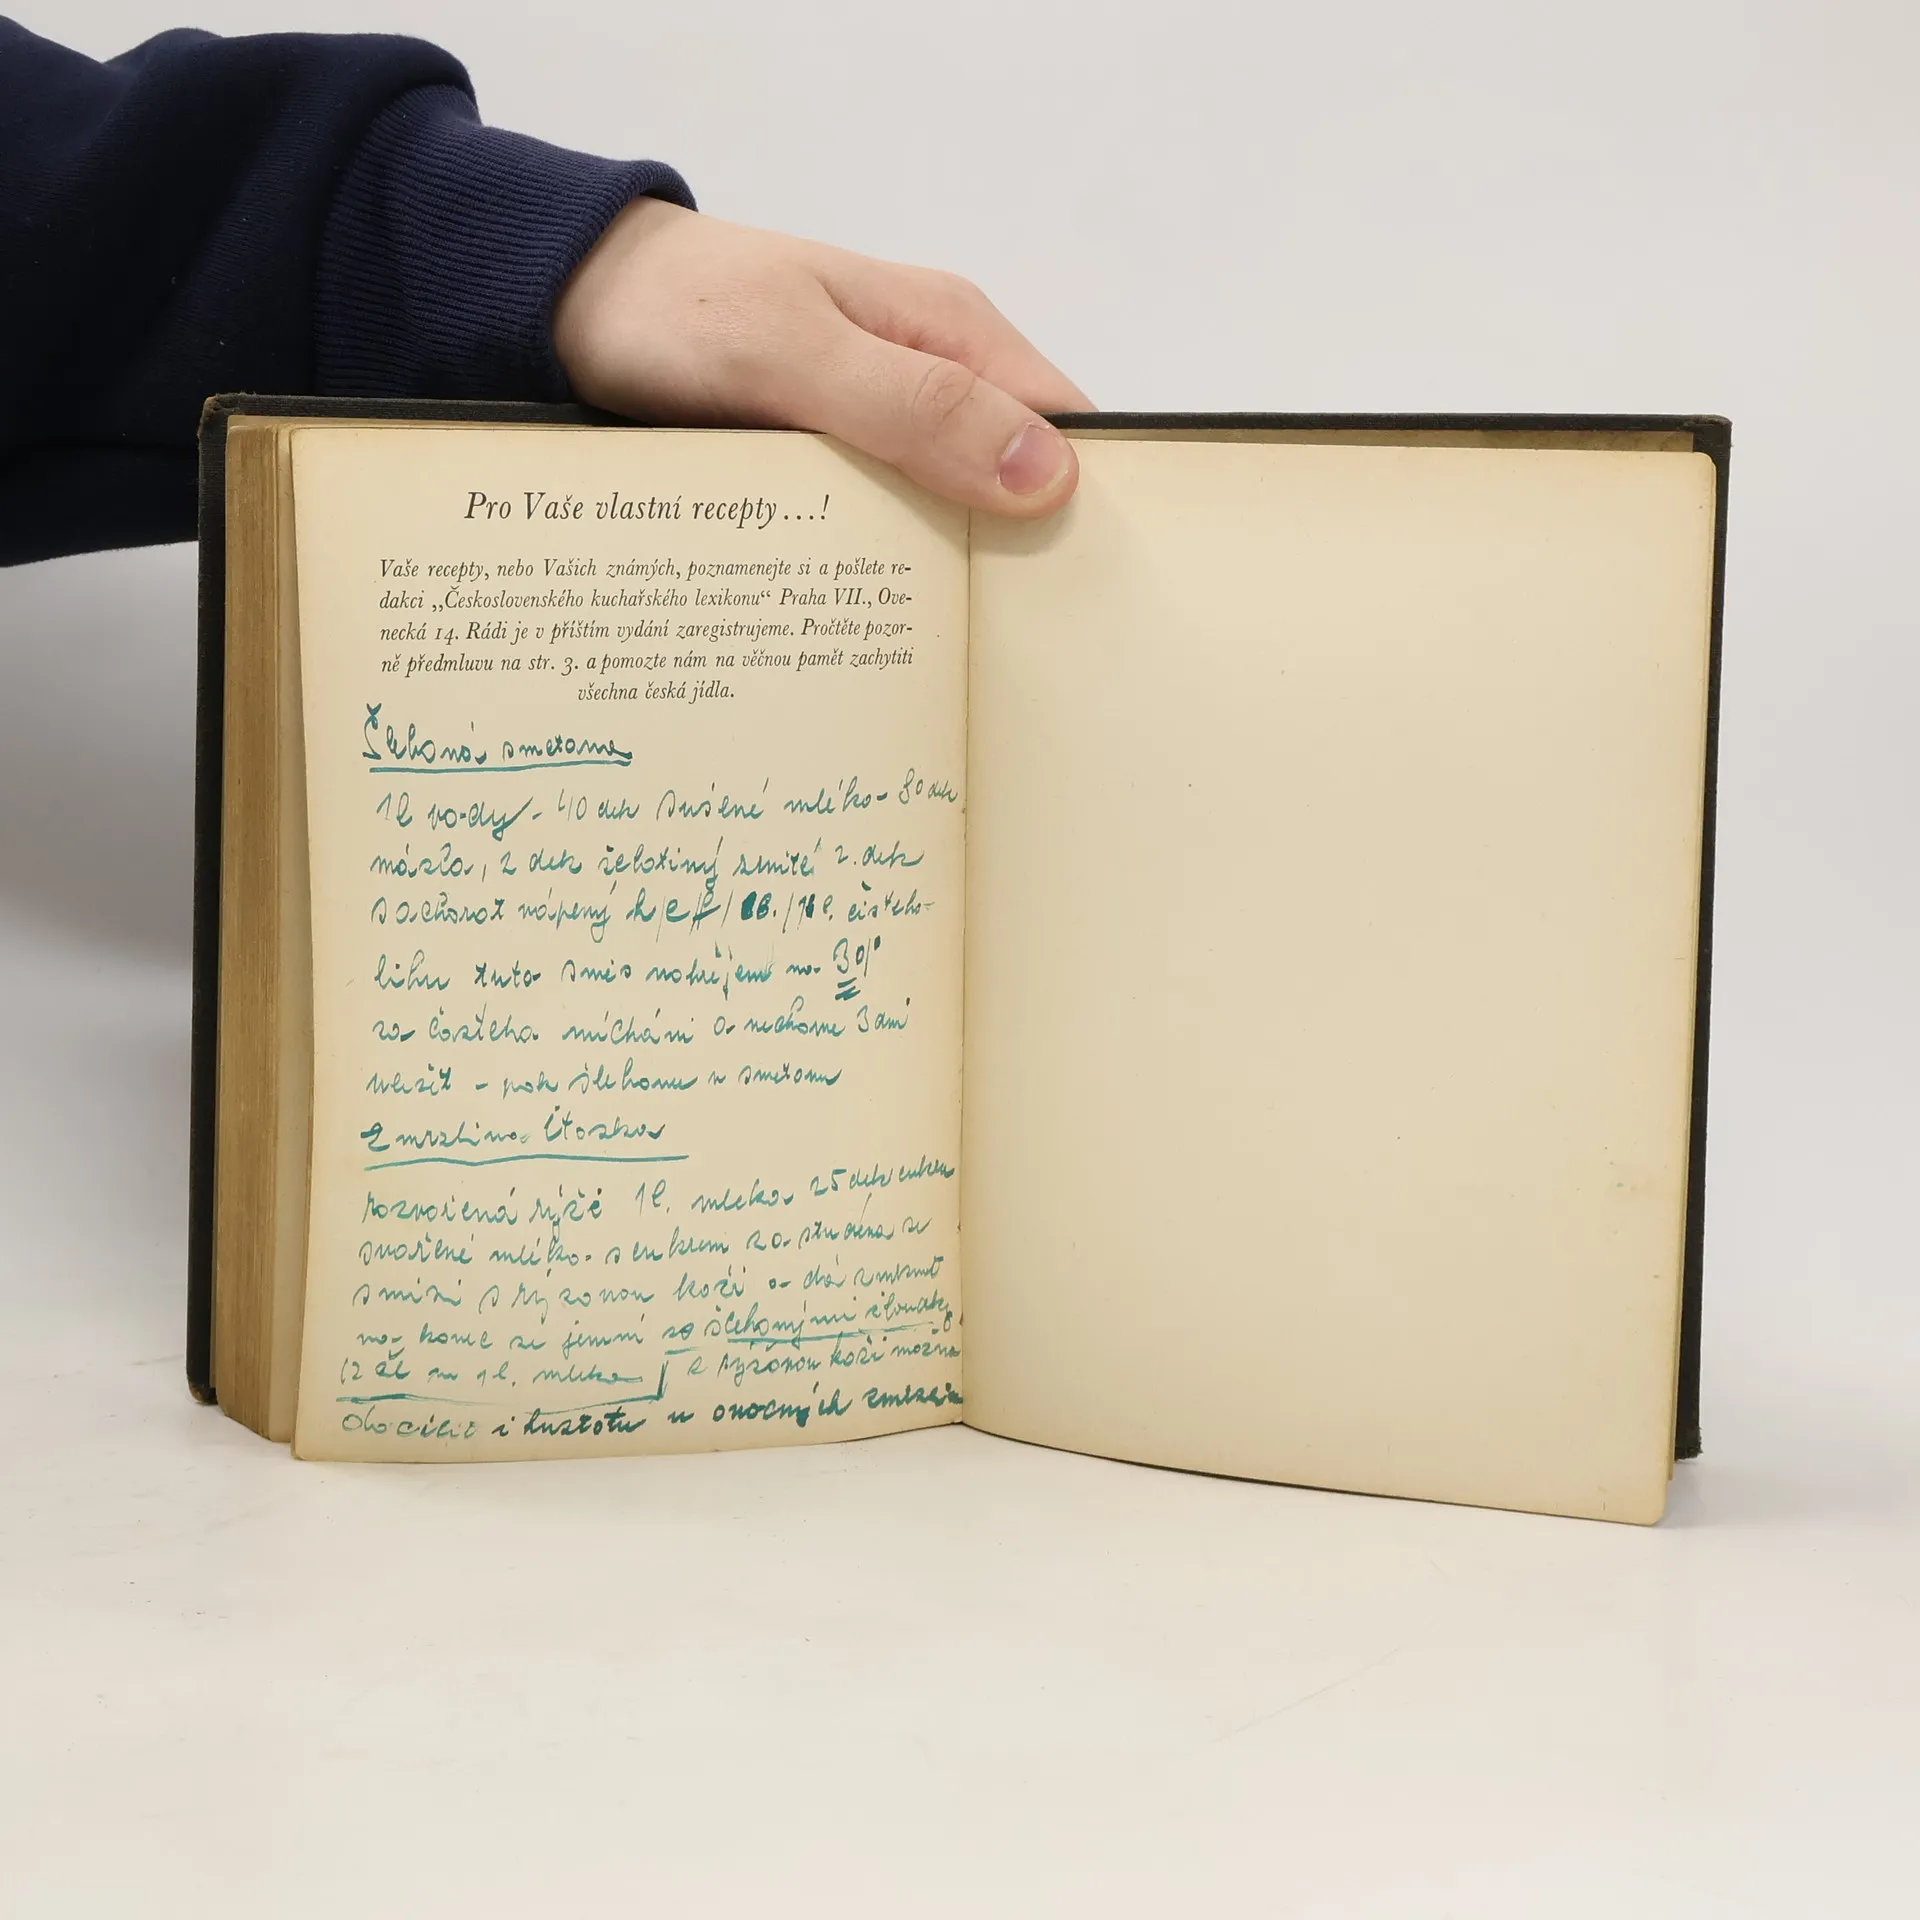 Pro Vaše vlastní recepty...!
Vaše recepty, nebo Vašich známých, poznamenejte si a pošlete re-
dakci „Československého kuchařského lexikonu“ Praha VII., Ove-
necká 14. Rádi je v příštím vydání zaregistrujeme. Pročtěte pozor-
ně předmluvu na str. 3. a pomozte nám na věčnou paměť zachytiti
všechna česká jídla.
Šlehaná smetana
1l vody - 40 dek sušené mléko - 80 dek
másla, 2 dek želatiny 2. dek
sacharat vápený čistého
lihu tuto směs nahřejem na 30°
za častého míchání a necháme 3 dni
uležit - pak šleháme u smetanu
Zmrzlina Italska
rozvařená rýže 1l. mleka 25 dek cukru
svařené mléko s cukrem za studena se
smísí s rýžovou kaší a dá zmrznout
na konec se jemní se šlehanými žloudky
12 na 1l. mleka s rýžovou kaší možno
docílit i hustotu u ovocných zmrzlin